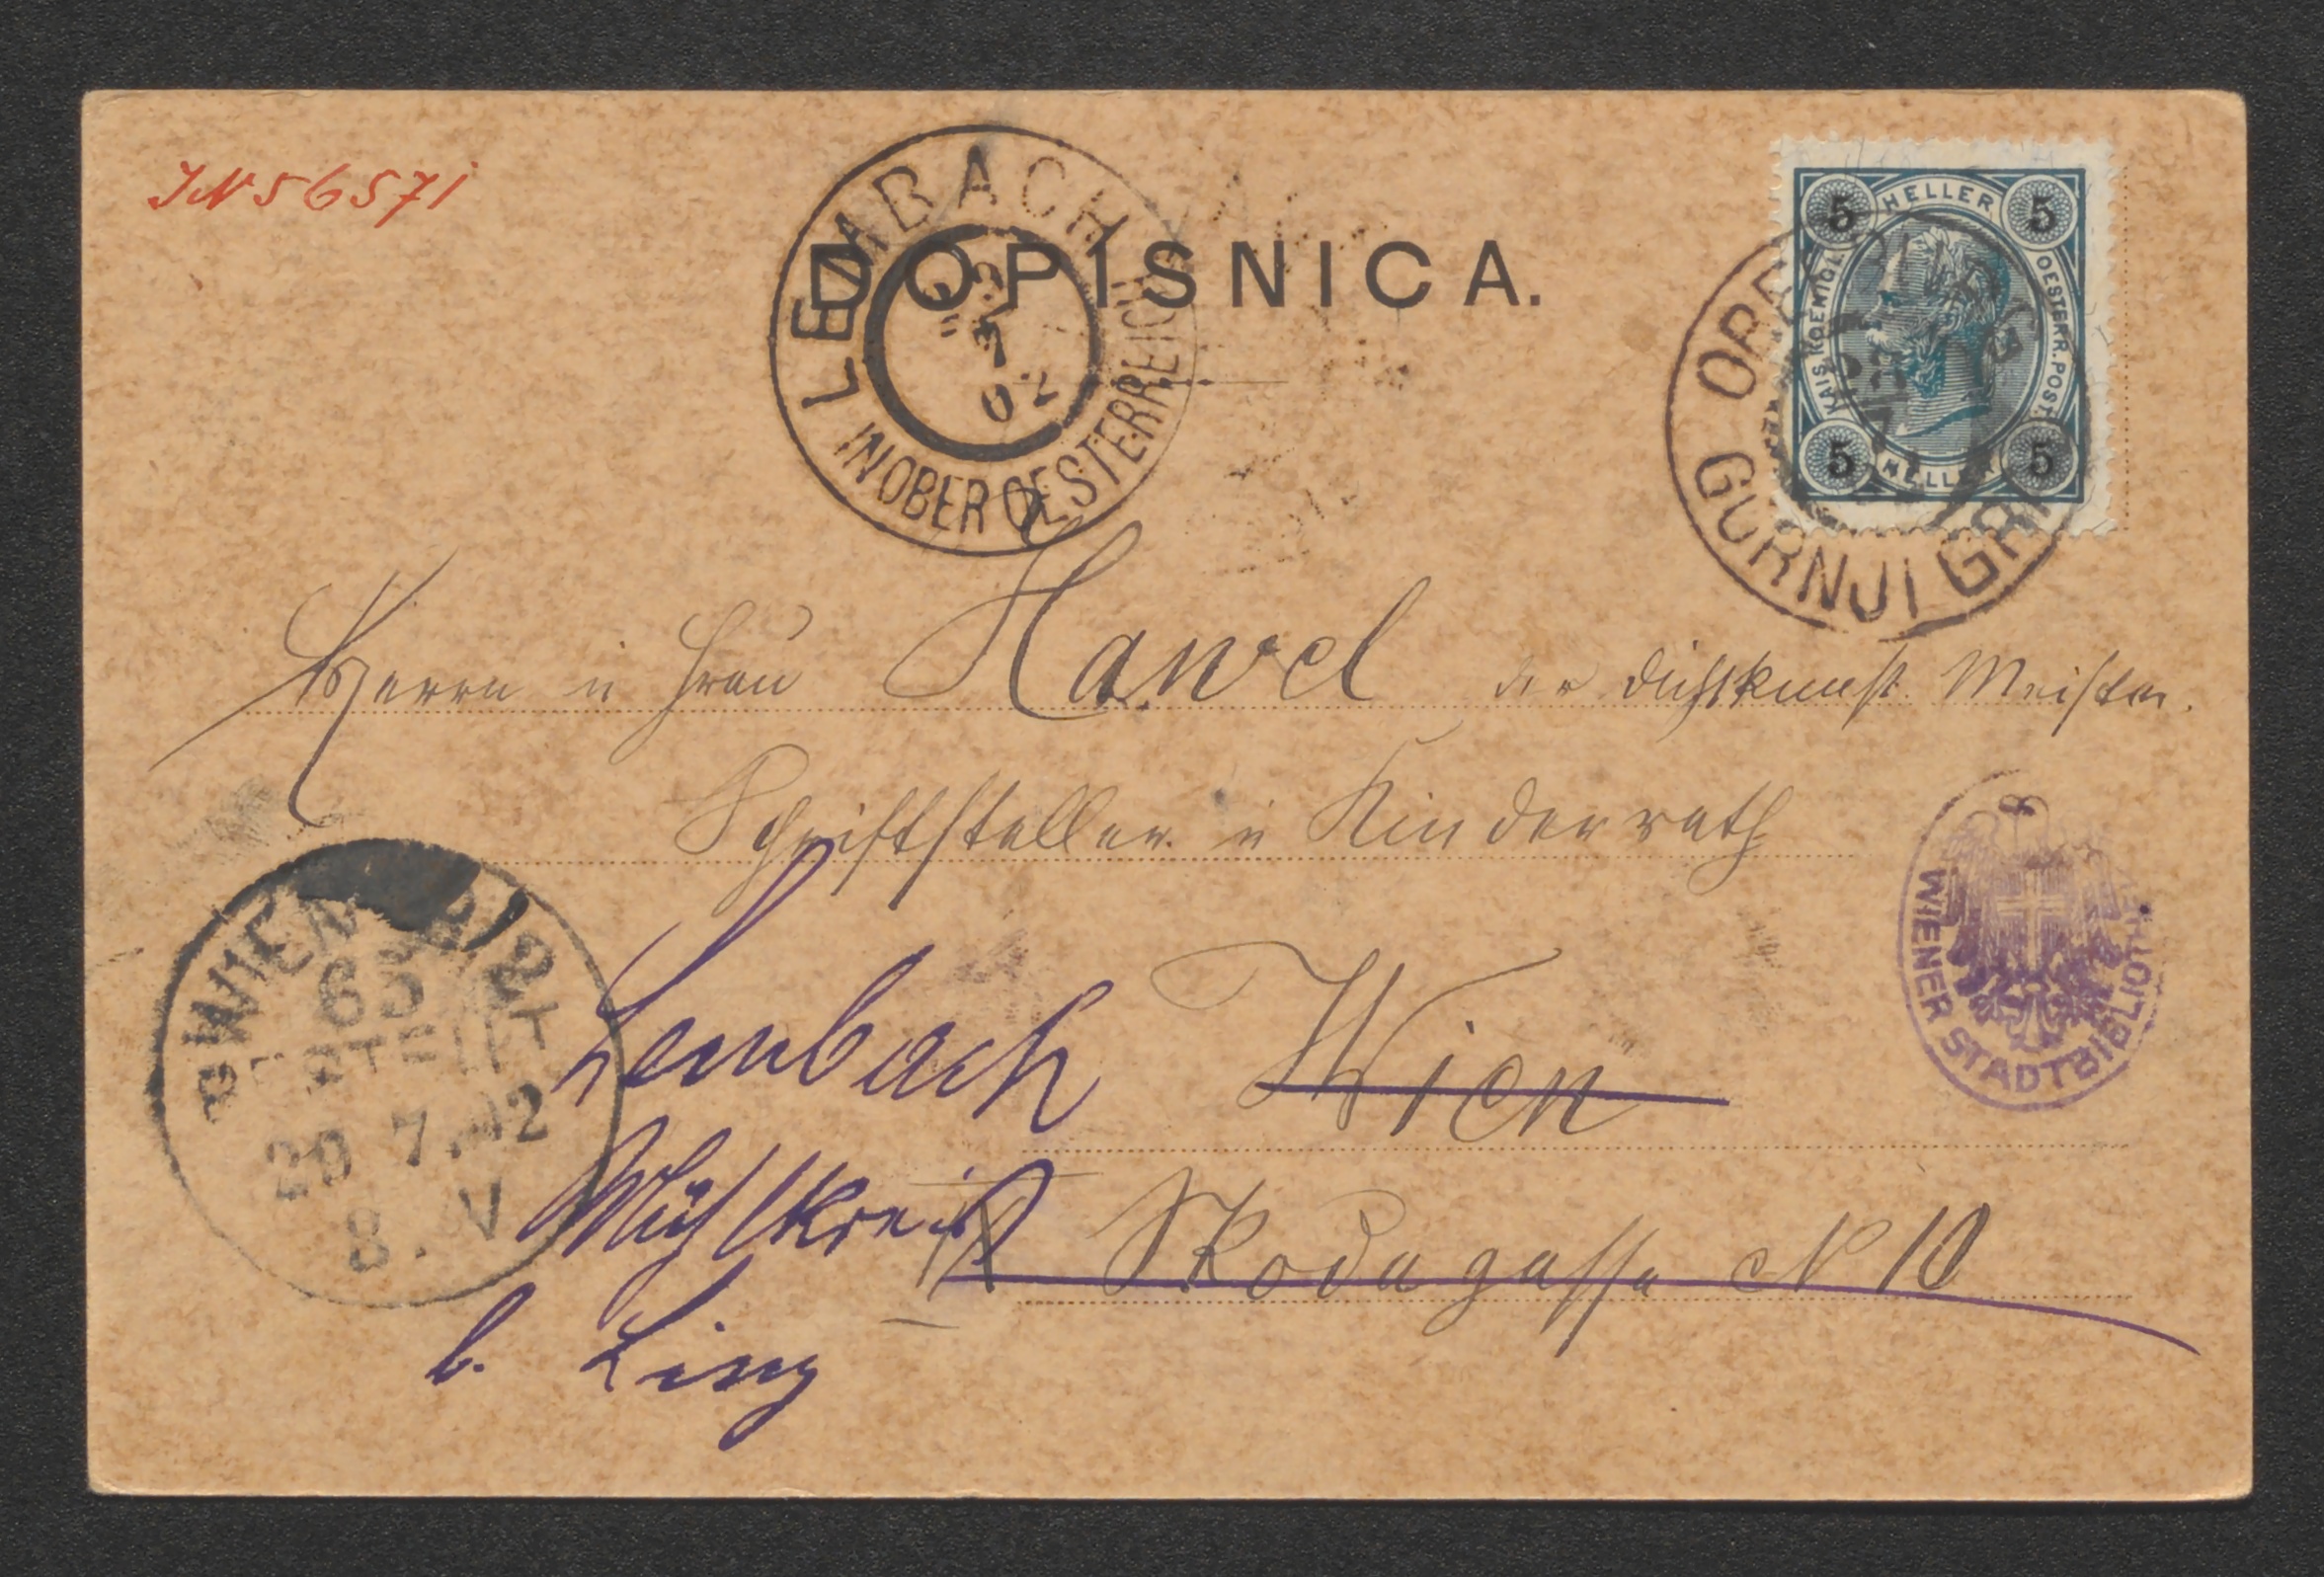 JN 56571
LEMBACH
IN OBER OESTERREICH
7
02
DOPISNICA.
HELLER
5 5
KAIS. KOENIGL. OESTERR. POST.
5 5
HELLER
GORNJI GRA
Herrn u Frau Hawel der Dichtkunst Meister.
Schriftsteller u Kinderrath
WIEN 9/2
63
BESTELLT
20 7. 02
8. V
WIENER STADTBIBLIOTH.
Lembach Wien
Mühlkreis
IX Skodagasse N 10
b. Linz